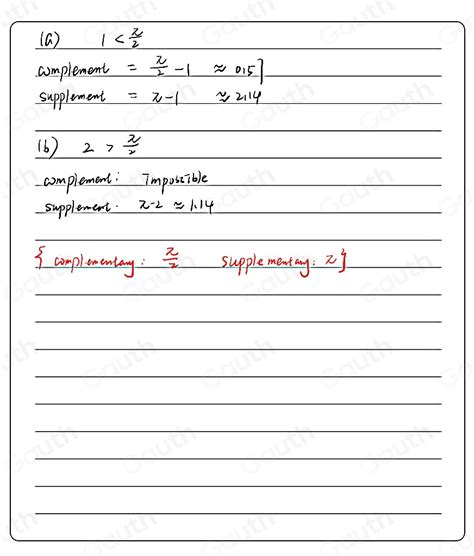 (a) 1 < π/2
complement = π/2 - 1 ≈ 0.57
supplement = π-1 ≈ 2.14
(b) 2 > π/2
complement: Impossible
supplement. π-2 ≈ 1.14
{ complementary: π/2 supplementary: π }
Gauth